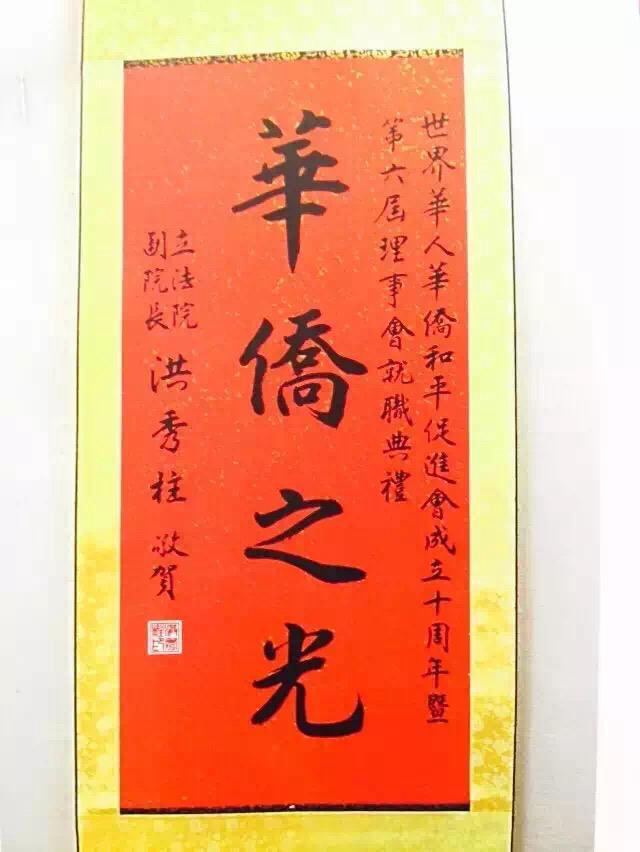 世界華人華僑和平促進會成立十周年暨
第六屆理事會就職典禮
華僑之光
立法院
副院長
洪秀柱 敬賀